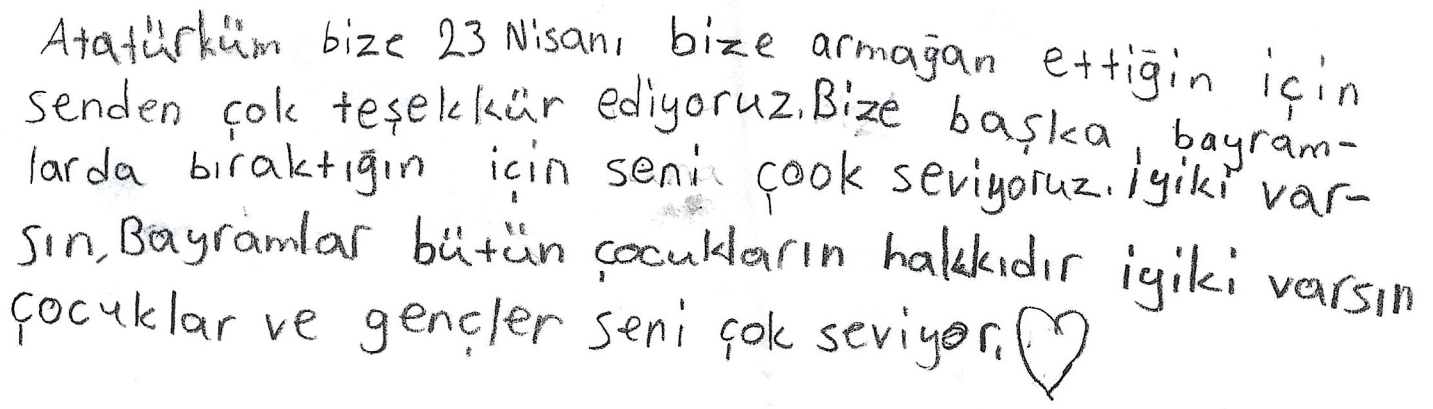 Atatürküm bize 23 Nisanı bize armağan ettiğin için
senden çok teşekkür ediyoruz. Bize başka bayram-
larda bıraktığın için seni çook seviyoruz. iyiki var-
sın, Bayramlar bütün çocukların hakkıdır iyiki varsın
çocuklar ve gençler seni çok seviyor. ♡